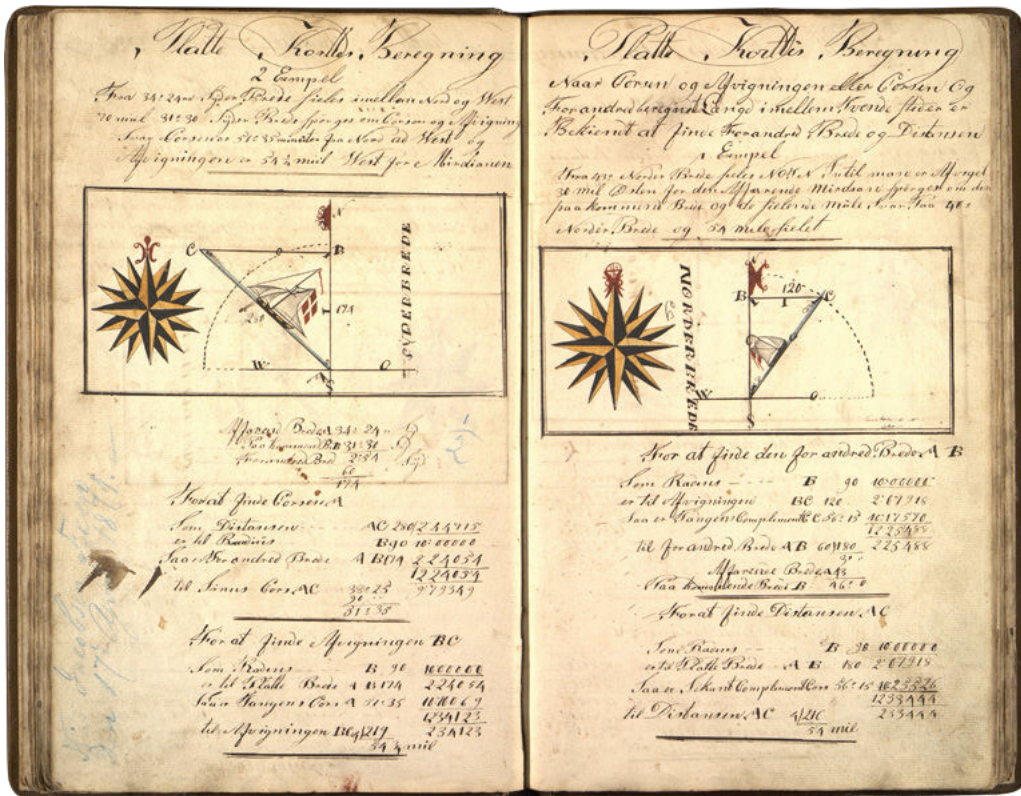 Platte Kortis Beregning
2 Exempel
Fra 34° 24m Syder Brede seiles imellem Nord og West
70 miil 31° 30 Syder Brede spörges om Corsen og Afvigning
Svar Corsen er 51° 35 minuter fra Nord ad West og
Afvigningen er 54 3/4 miil West for Miridianen
N
C
B
280
174
SYDERBREDE
W
A
O
Affarend Brede A 34° 24 Syd
Paakommend B B 31° 30 Syd
Forandred Bred 2° 54 Syd
60
174
For at finde Corsen A
Som Distansen AC 280 244715
er til Radius B 90 1000000
Saa er Forandred Brede A B 174 224054
1224054
til Sinus Cors AC 38° 25 979349
90
51° 35
For at finde Afvigningen BC
Som Radius B 90 1000000
er til Platte Brede A B 174 224054
Saa er Tangens Cors A 51° 35 1010069
1234123
til Afvigningen BC 4/219 234123
54 3/4 miil
Platte Kortis Beregning
Naar Corsen og Afvigningen eller Corsen Og
Forandred beregnet Længe imellem Tvende steder er
Bekiendt at finde Forandred Brede og Distansen
1 Exempel
Fra 43° Norder Brede seiles indtil man er Afveiget
30 mil Østen for den Affarende Miridian spörges om den
paakommend Brede og de seilende Miile Svar Paa 46°
Norder Brede og 54 mile seilet
NORDERBREDE
B
120
C
W
O
S
For at finde den forandred Brede A B
Som Radius B 90 1000000
er til Afvigningen BC 120 207918
Saa er Tangens Compliment C 56° 15 1017570
1225488
til forandred Brede A B 60/180 225488
3°
Affarende Brede A 43
Paa kommende Brede B 46° 0
For at finde Distansen AC
Som Radius B 90 1000000
er til Platte Brede A B 180 207918
Saa er Sekant Compliment Cors 56° 15 1025526
1233444
til Distansen AC 4/216 233444
54 mil